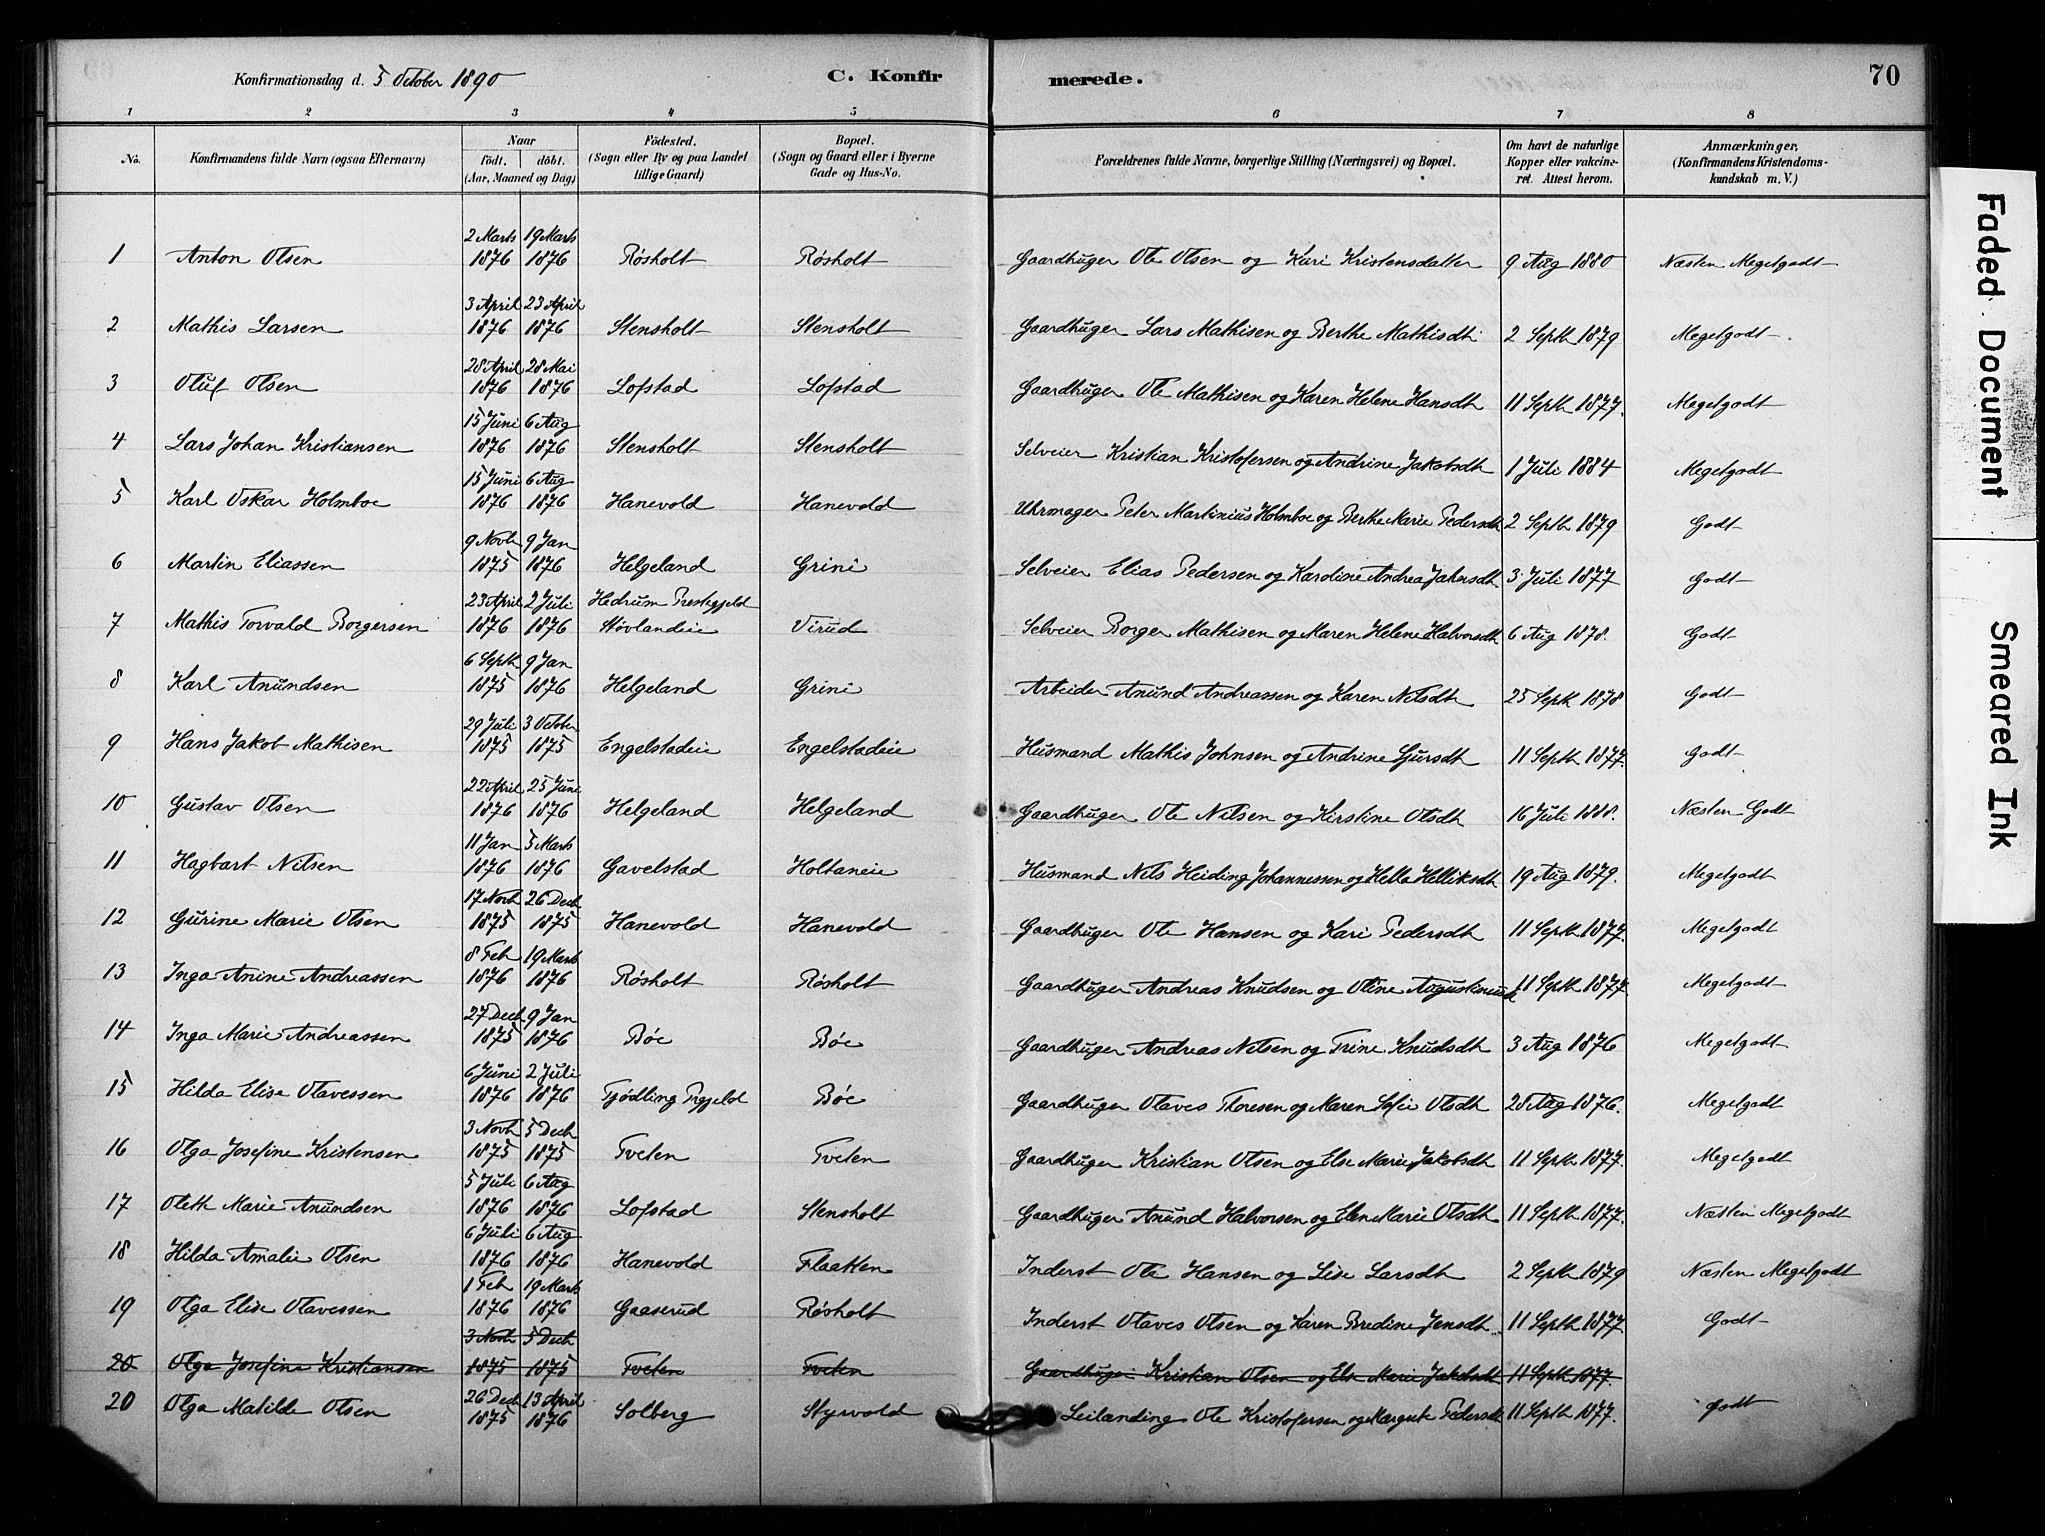 Konfirmationsdag d. 5 October 1890 C. Konfirmerede. 70
1 2 3 4 5 6 7 8
No. Konfirmandens fulde Navn (ogsaa Efternavn) Naar födt. döbt. (Aar, Maaned og Dag) Födested. (Sogn eller By og paa Landet tillige Gaard) Bopæl. (Sogn og Gaard eller i Byerne Gade og Hus-No. Forældrenes fulde Navne, borgerlige Stilling (Næringsvei) og Bopæl. Om havt de naturlige Kopper eller vakcineret. Attest herom. Anmærkninger, (Konfirmandens Kristendomskundskab m. V.)
1 Anton Olsen 2 Marts 1876 19 Marts 1876 Røsholt Røsholt Gaardbruger Ole Olsen og Kari Kristensdatter 9 Aug 1880 Næsten Megetgodt
2 Mathis Larsen 3 April 1876 23 April 1876 Stensholt Stensholt Gaardbruger Lars Mathisen og Berthe Mathisdt 2 Septb 1879 Megetgodt
3 Oluf Olsen 28 April 1876 28 Mai 1876 Lofstad Lofstad Gaardbruger Ole Mathisen og Karen Helene Hansdt 11 Septb 1877. Megetgodt
4 Lars Johan Kristiansen 15 Juni 1876 6 Aug 1876 Stensholt Stensholt Selveier Kristian Kristofersen og Andrine Jakobsdt 1 Juli 1884 Megetgodt
5 Karl Oskar Holmboe 15 Juni 1876 6 Aug 1876 Hanevold Hanevold Uhrmager Peter Martinius Holmboe og Berthe Marie Pedersdt 2 Septb 1879 Godt
6 Martin Eliassen 9 Novb 1875 9 Jan 1876 Helgeland Grini Selveier Elias Pedersen og Karoline Andrea 3 Juli 1877 Godt
7 Mathis Torvald Borgersen 23 April 1876 2 Juli 1876 Hedrum Prestegjeld Støvlandeie Virud Selveier Borger Mathisen og Maren Helene Halvorsdt 6 Aug 1878. Godt
8 Karl Anundsen 6 Septb 1875 9 Jan 1876 Helgeland Grini Arbeider Anund Andreassen og Karen Nilsdt 25 Septb 1878 Godt
9 Hans Jakob Mathisen 29 Juli 1875 3 October 1875 Engelstadeie Engelstadeie Husmand Mathis Johnsen og Andrine Sjursdt 11 Septb 1877. Godt
10 Gustav Olsen 22 April 1876 25 Juni 1876 Helgeland Helgeland Gaardbruger Ole Nilsen og Kirstine Olsdt 16 Juli 1880. Næsten Godt
11 Hagbart Nilsen 11 Jan 1876 5 Marts 1876 Gavelstad Holtaneie Husmand Nils Heiding Johannessen og Hella Helliksdt 19 Aug 1879. Megetgodt
12 Gurine Marie Olsen 17 Novb 1875 26 Decb 1875 Hanevold Hanevold Gaardbruger Ole Hansen og Kari Pedersdt 11 Septb 1877. Megetgodt
13 Inga Anine Andreassen 8 Feb 1876 19 Marts 1876 Røsholt Røsholt Gaardbruger Andreas Knudsen og Oline 11 Septb 1877 Megetgodt
14 Inga Marie Andreassen 27 Decb 1875 9 Jan 1876 Bøe Bøe Gaardbruger Andreas Nilsen og Trine Knudsdt 3 Aug 1876 Megetgodt
15 Hilda Elise Olavessen 6 Juni 1876 2 Juli 1876 Tjødling Prgjeld Bøe Gaardbruger Olaves Thoresen og Maren Sofie Olsdt 28 Aug 1876. Megetgodt
16 Olga Josefine Kristensen 3 Novb 1875 5 Decb 1875 Tveten Tveten Gaardbruger Kristian Olsen og Else Marie Jakobsdt 11 Septb 1877. Megetgodt
17 Oleth Marie Anundsen 5 Juli 1876 6 Aug 1876 Lofstad Stensholt Gaardbruger Anund Halvorsen og Elen Marie Olsdt 11 Septb 1877. Næsten Megetgodt
18 Hilda Amalie Olsen 6 Juli 1876 6 Aug 1876 Hanevold Flaatten Inderst Ole Hansen og Lise Larsdt 2 Septb 1879 Næsten Megetgodt
19 Olga Elise Olavessen 1 Feb 1876 19 Marts 1876 Gaaserud Røsholt Inderst Olaves Olsen og Karen Bredine Jensdt. 11 Septb 1877 Godt
20 Olga Josefine Kristiansen 3 Novb 1875 5 Decb 1875 Tveten Tveten Gaardbruger Kristian Olsen og Else Marie Jakobsdt 11 Septb 1877.
20 Olga Matilde Olsen 26 Decb 1875 13 April 1876 Solberg Styrvold Leilænding Ole Kristofersen og Margrete Pedersdt 11 Septb 1877. Godt
Faded Document
Smeared Ink